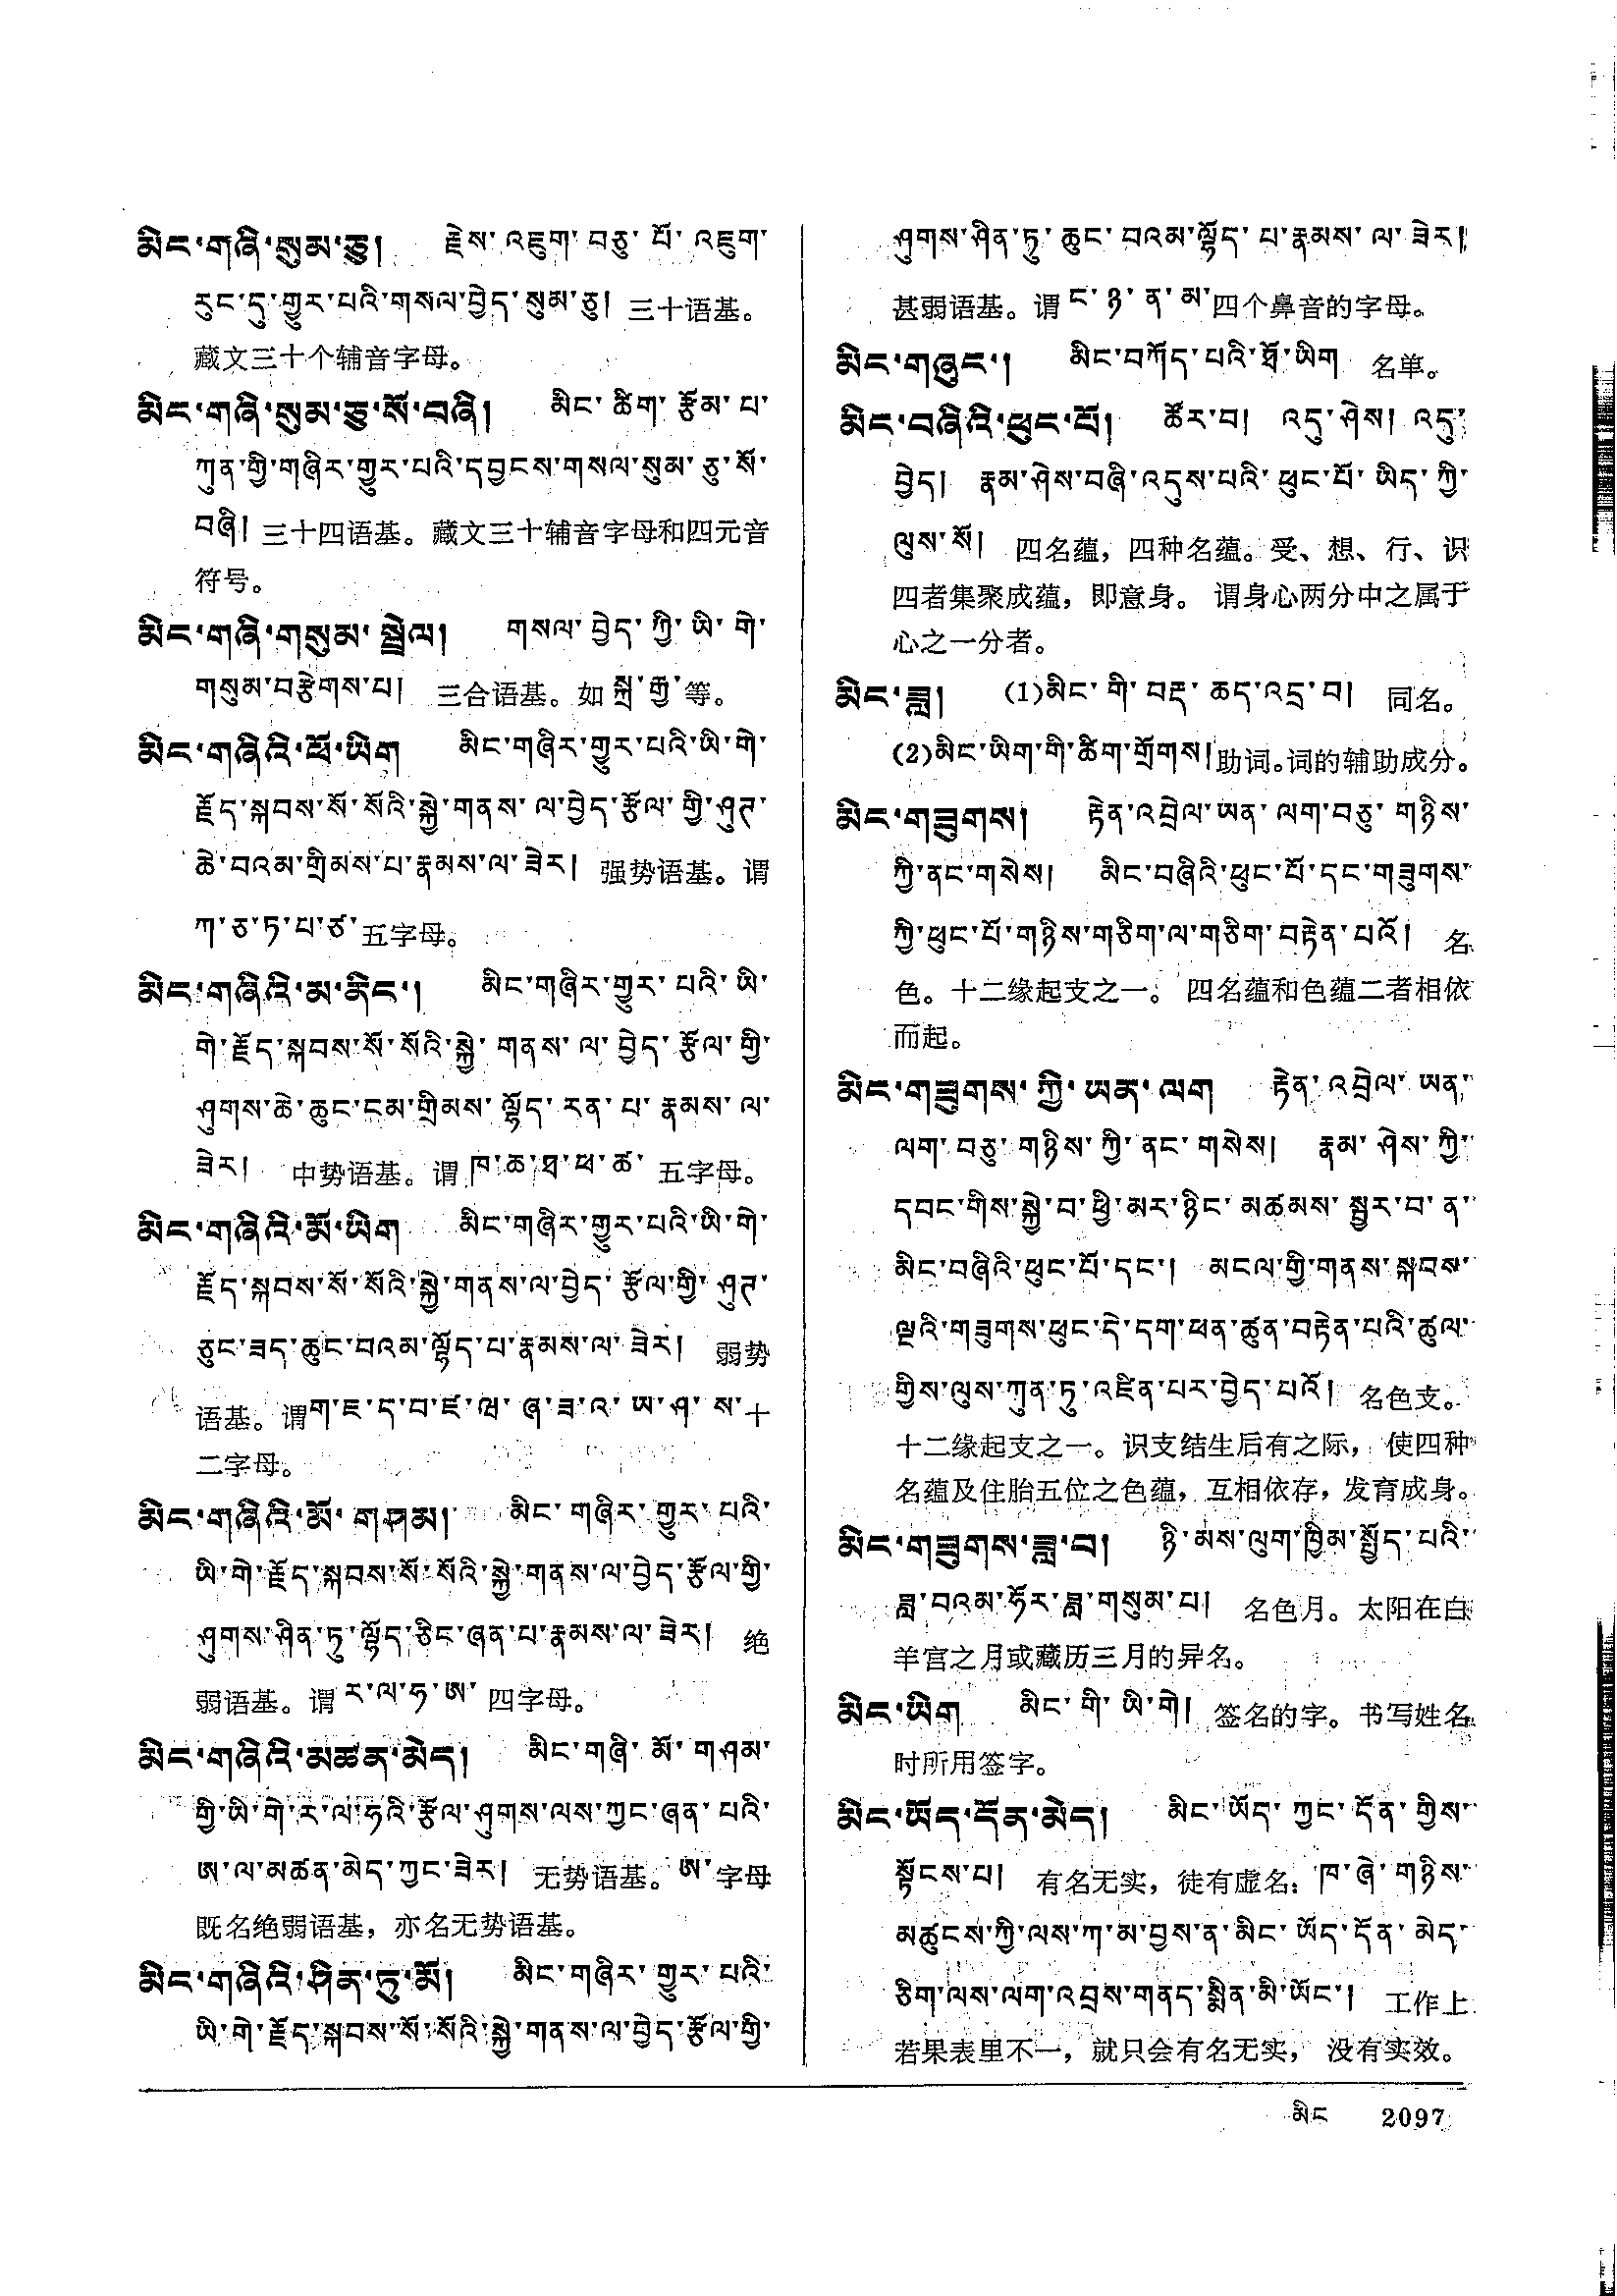 མིང་གཞི་སུམ་ཅུ། རྗེས་འཇུག་བཅུ་པོ་འཇུག་
རུང་དུ་གྱུར་པའི་གསལ་བྱེད་སུམ་ཅུ། 三十语基。
藏文三十个辅音字母。
མིང་གཞི་སུམ་ཅུ་སོ་བཞི། མིང་ཚིག་རྩོམ་པ་
ཀུན་གྱི་གཞིར་གྱུར་པའི་དབྱངས་གསལ་སུམ་ཅུ་སོ་
བཞི། 三十四语基。藏文三十辅音字母和四元音
符号。
མིང་གཞི་གསུམ་སྦྲེལ། གསལ་བྱེད་ཀྱི་ཡི་གེ་
གསུམ་བརྩེགས་པ། 三合语基。如 སྐྲ་རྒྱ་等。
མིང་གཞིའི་ཕོ་ཡིག མིང་གཞིར་གྱུར་པའི་ཡི་གེ་
རྗོད་སྐབས་སོ་སོའི་སྐྱེ་གནས་ལ་བྱེད་རྩོལ་གྱི་ཤུཊ་
ཆེ་བའམ་གྲིམས་པ་རྣམས་ལ་ཟེར། 强势语基。谓
ཀ་ཅ་ཏ་པ་ཙ་五字母。
མིང་གཞིའི་མ་ནིང་། མིང་གཞིར་གྱུར་པའི་ཡི་
གེ་རྗོད་སྐབས་སོ་སོའི་སྐྱེ་གནས་ལ་བྱེད་རྩོལ་གྱི་
ཤུགས་ཆེ་ཆུང་ངམ་གྲིམས་ལྷོད་རན་པ་རྣམས་ལ་
ཟེར། 中势语基。谓 ཁ་ཆ་ཐ་ཕ་ཚ་ 五字母。
མིང་གཞིའི་མོ་ཡིག མིང་གཞིར་གྱུར་པའི་ཡི་གེ་
རྗོད་སྐབས་སོ་སོའི་སྐྱེ་གནས་ལ་བྱེད་རྩོལ་གྱི་ཤུཊ་
ཅུང་ཟད་ཆུང་བའམ་ལྷོད་པ་རྣམས་ལ་ཟེར། 弱势
语基。谓ག་ཇ་ད་བ་ཛ་ཝ་ཞ་ཟ་འ་ཡ་ཤ་ས་十
二字母。
མིང་གཞིའི་མོ་གཤམ། མིང་གཞིར་གྱུར་པའི་
ཡི་གེ་རྗོད་སྐབས་སོ་སོའི་སྐྱེ་གནས་ལ་བྱེད་རྩོལ་གྱི་
ཤུགས་ཤིན་ཏུ་ལྷོད་ཅིང་ཞན་པ་རྣམས་ལ་ཟེར། 绝
弱语基。谓 ར་ལ་ཧ་ཨ་ 四字母。
མིང་གཞིའི་མཚན་མེད། མིང་གཞི་མོ་གཤམ་
གྱི་ཡི་གེ་ར་ལ་ཧའི་རྩོལ་ཤུགས་ལས་ཀྱང་ཞན་པའི་
ཨ་ལ་མཚན་མེད་ཀྱང་ཟེར། 无势语基。ཨ་字母
既名绝弱语基，亦名无势语基。
མིང་གཞིའི་ཤིན་ཏུ་མོ། མིང་གཞིར་གྱུར་པའི་
ཡི་གེ་རྗོད་སྐབས་སོ་སོའི་སྐྱེ་གནས་ལ་བྱེད་རྩོལ་གྱི་
ཤུགས་ཤིན་ཏུ་ཆུང་བའམ་ལྷོད་པ་རྣམས་ལ་ཟེར།
甚弱语基。谓 ང་ཉ་ན་མ་四个鼻音的字母。
མིང་གཞུང་། མིང་བཀོད་པའི་ཐོ་ཡིག 名单。
མིང་བཞིའི་ཕུང་པོ། ཚོར་བ། འདུ་ཤེས། འདུ་
བྱེད། རྣམ་ཤེས་བཞི་འདུས་པའི་ཕུང་པོ་ཡིད་ཀྱི་
ལུས་སོ། 四名蕴，四种名蕴。受、想、行、识
四者集聚成蕴，即意身。谓身心两分中之属于
心之一分者。
མིང་ཟླ། (1)མིང་གི་བརྡ་ཆད་འདྲ་བ། 同名。
(2)མིང་ཡིག་གི་ཚིག་གྲོགས།助词。词的辅助成分。
མིང་གཟུགས། རྟེན་འབྲེལ་ཡན་ལག་བཅུ་གཉིས་
ཀྱི་ནང་གསེས། མིང་བཞིའི་ཕུང་པོ་དང་གཟུགས་
ཀྱི་ཕུང་པོ་གཉིས་གཅིག་ལ་གཅིག་བརྟེན་པའོ། 名
色。十二缘起支之一。四名蕴和色蕴二者相依
而起。
མིང་གཟུགས་ཀྱི་ཡན་ལག རྟེན་འབྲེལ་ཡན་
ལག་བཅུ་གཉིས་ཀྱི་ནང་གསེས། རྣམ་ཤེས་ཀྱི་
དབང་གིས་སྐྱེ་བ་ཕྱི་མར་ཉིང་མཚམས་སྦྱར་བ་ན་
མིང་བཞིའི་ཕུང་པོ་དང་། མངལ་གྱི་གནས་སྐབས་
ལྔའི་གཟུགས་ཕུང་དེ་དག་ཕན་ཚུན་བརྟེན་པའི་ཚུལ་
གྱིས་ལུས་ཀུན་ཏུ་འཛིན་པར་བྱེད་པའོ། 名色支。
十二缘起支之一。识支结生后有之际，使四种
名蕴及住胎五位之色蕴，互相依存，发育成身。
མིང་གཟུགས་ཟླ་བ། ཉི་མས་ལུག་ཁྱིམ་སྤྱོད་པའི་
ཟླ་བའམ་ཧོར་ཟླ་གསུམ་པ། 名色月。太阳在白
羊宫之月或藏历三月的异名。
མིང་ཡིག མིང་གི་ཡི་གེ། 签名的字。书写姓名
时所用签字。
མིང་ཡོད་དོན་མེད། མིང་ཡོད་ཀྱང་དོན་གྱིས་
སྟོངས་པ། 有名无实，徒有虚名：ཁ་ཞེ་གཉིས་
མཚུངས་ཀྱི་ལས་ཀ་མ་བྱས་ན་མིང་ཡོད་དོན་མེད་
ཅིག་ལས་ལག་འབྲས་གནད་སྨིན་མི་ཡོང་། 工作上
若果表里不一，就只会有名无实，没有实效。
མིང 2097